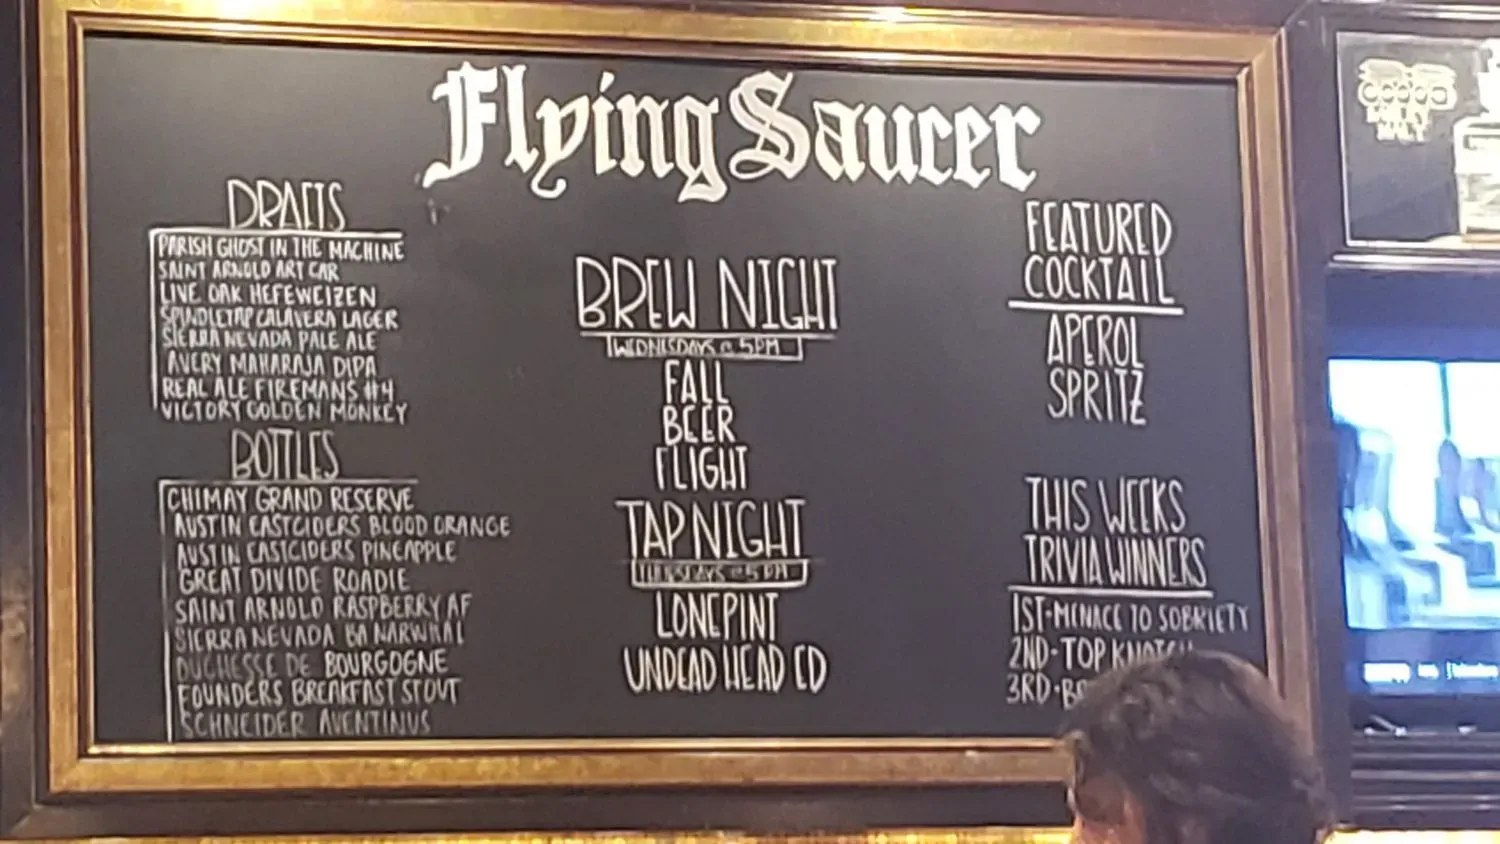 Flying Saucer
DRAFTS
PARISH GHOST IN THE MACHINE
SAINT ARNOLD ART CAR
LIVE OAK HEFEWEIZEN
SPINDLETAP CALAVERA LAGER
SIERRA NEVADA PALE ALE
AVERY MAHARAJA DIPA
REAL ALE FIREMANS #4
VICTORY GOLDEN MONKEY
BOTTLES
CHIMAY GRAND RESERVE
AUSTIN EASTCIDERS BLOOD ORANGE
AUSTIN EASTCIDERS PINEAPPLE
GREAT DIVIDE ROADIE
SAINT ARNOLD RASPBERRY AF
SIERRA NEVADA BA NARWHAL
DUCHESSE DE BOURGOGNE
FOUNDERS BREAKFAST STOUT
SCHNEIDER AVENTINUS
BREW NIGHT
WEDNESDAYS @ 5PM
FALL
BEER
FLIGHT
TAP NIGHT
@ 5PM
LONEPINT
UNDEAD HEAD ED
FEATURED
COCKTAIL
APEROL
SPRITZ
THIS WEEKS
TRIVIA WINNERS
1ST-MENACE TO SOBRIETY
2ND-TOP
3RD-